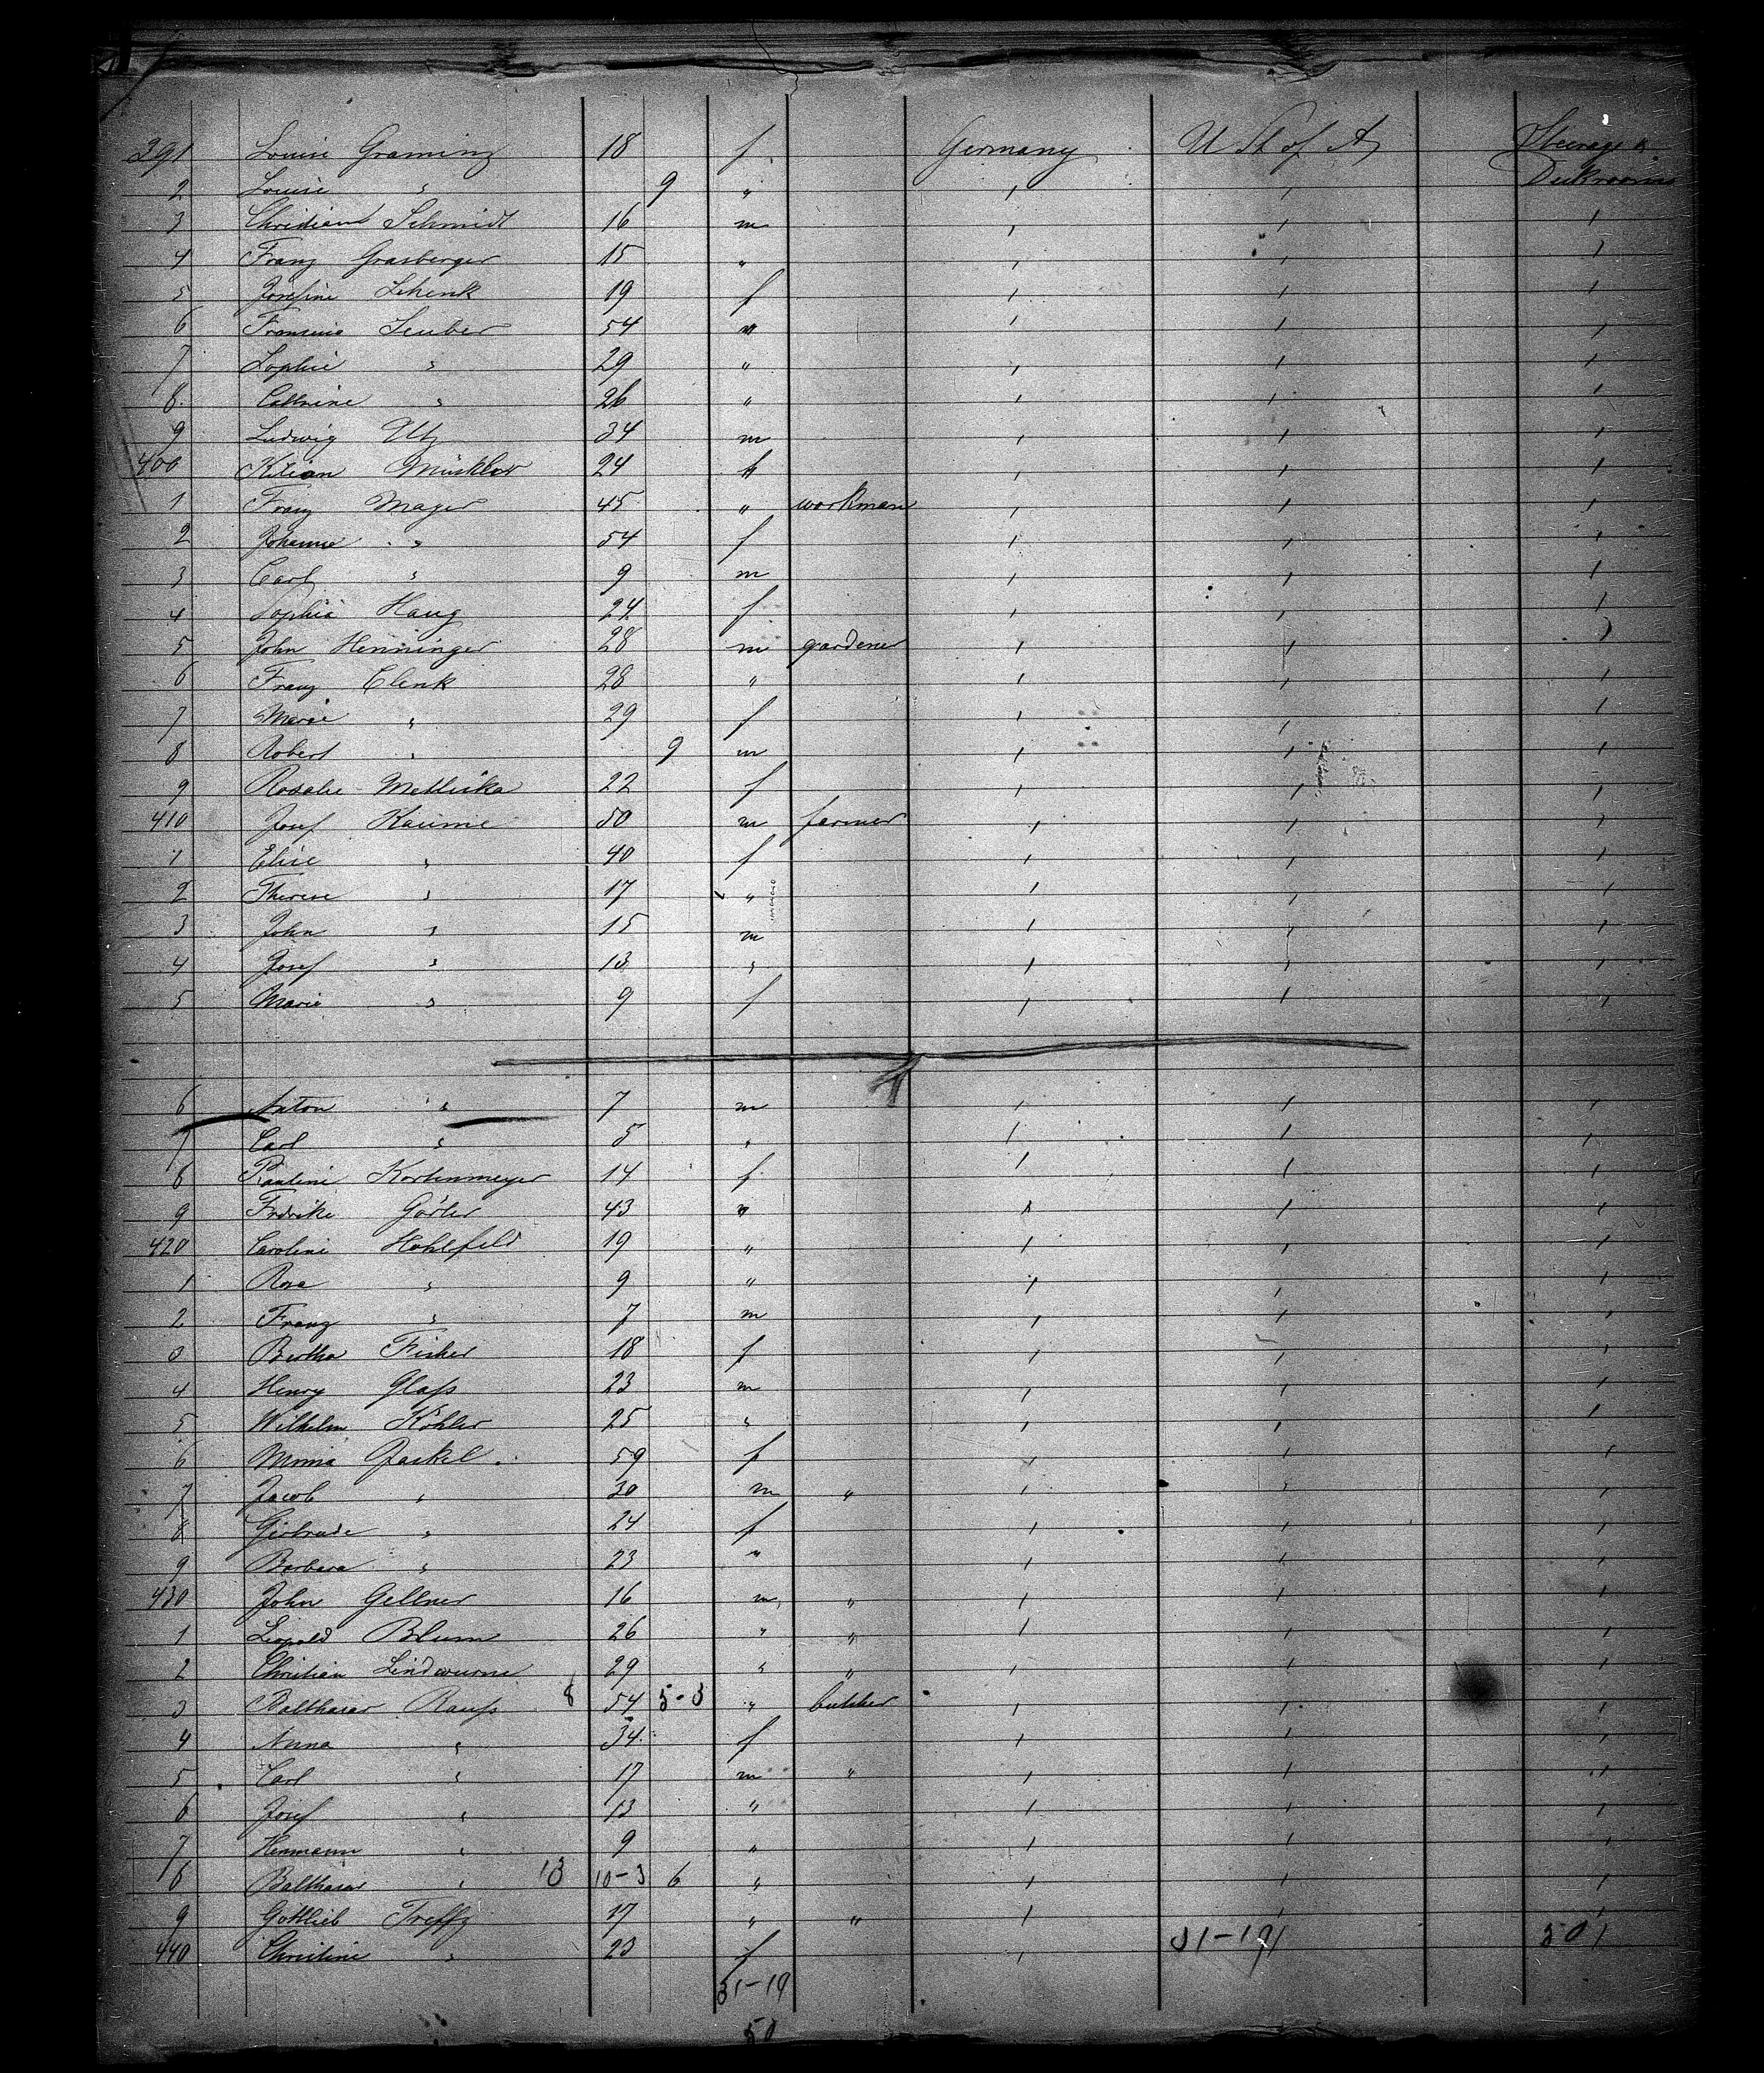 391 Louise Graming 18 f. Germany U St of A Steerage &
2 Louise " 9 " " " Deckrooms
3 Christian Schmidt 16 m " " "
4 Franz Grasberger 15 " " " "
5 Josefine Schenk 19 f " " "
6 Leuber 54 " " " "
7 Sophie " 29 " " " "
8 Cathrine " 26 " " " "
9 Ludwig Utz 34 m " " "
400 Kilian 24 " " " "
1 Franz Mager 45 " workman " " "
2 Johanne " 54 f " " "
3 Carl " 9 m " " "
4 Sophia Haug 24 f " " "
5 John Henninger 28 m gardener " " "
6 Franz Clenk 28 " " " "
7 Marie " 29 f " " "
8 Robert " 9 m " " "
9 Rosalie Metliska 22 f " " "
410 Josef Kaime 50 m farmer " " "
1 Elise " 40 f " " "
2 Therese " 17 " " " "
3 John " 15 m " " "
4 Josef " 13 " " " "
5 Marie " 9 f " " "
6 Anton " 7 m " " "
7 Carl " 5 " " " "
8 Pauline Kortenmeyer 14 f " " "
9 Fredrike Görler 43 " " " "
420 Caroline Hohlfeld 19 " " " "
1 Rosa " 9 " " " "
2 Franz " 7 m " " "
3 Bertha Fisher 18 f " " "
4 Henry Glass 23 m " " "
5 Wilhelm Köhler 25 " " " "
6 Minna Jaekel 59 f " " "
7 Jacob " 30 m " " " "
8 Gertrude " 24 f " " "
9 Barbara " 23 " " " "
430 John Gellner 16 m " " " "
1 Leopold Blum 26 " " " " "
2 Christian Lindwurm 29 " " " " "
3 Balthasar Rauss 8 54 5-3 " butcher " " "
4 Anna " 34 f " " "
5 Carl " 17 m " " " "
6 Josef " 13 " " " "
7 Hermann " 9 " " " "
8 Balthasar " 13 10-3 6 " " " "
9 Gottlieb Treffz 17 " " " " "
440 Christine " 23 f " 31-19 50
31-19
50